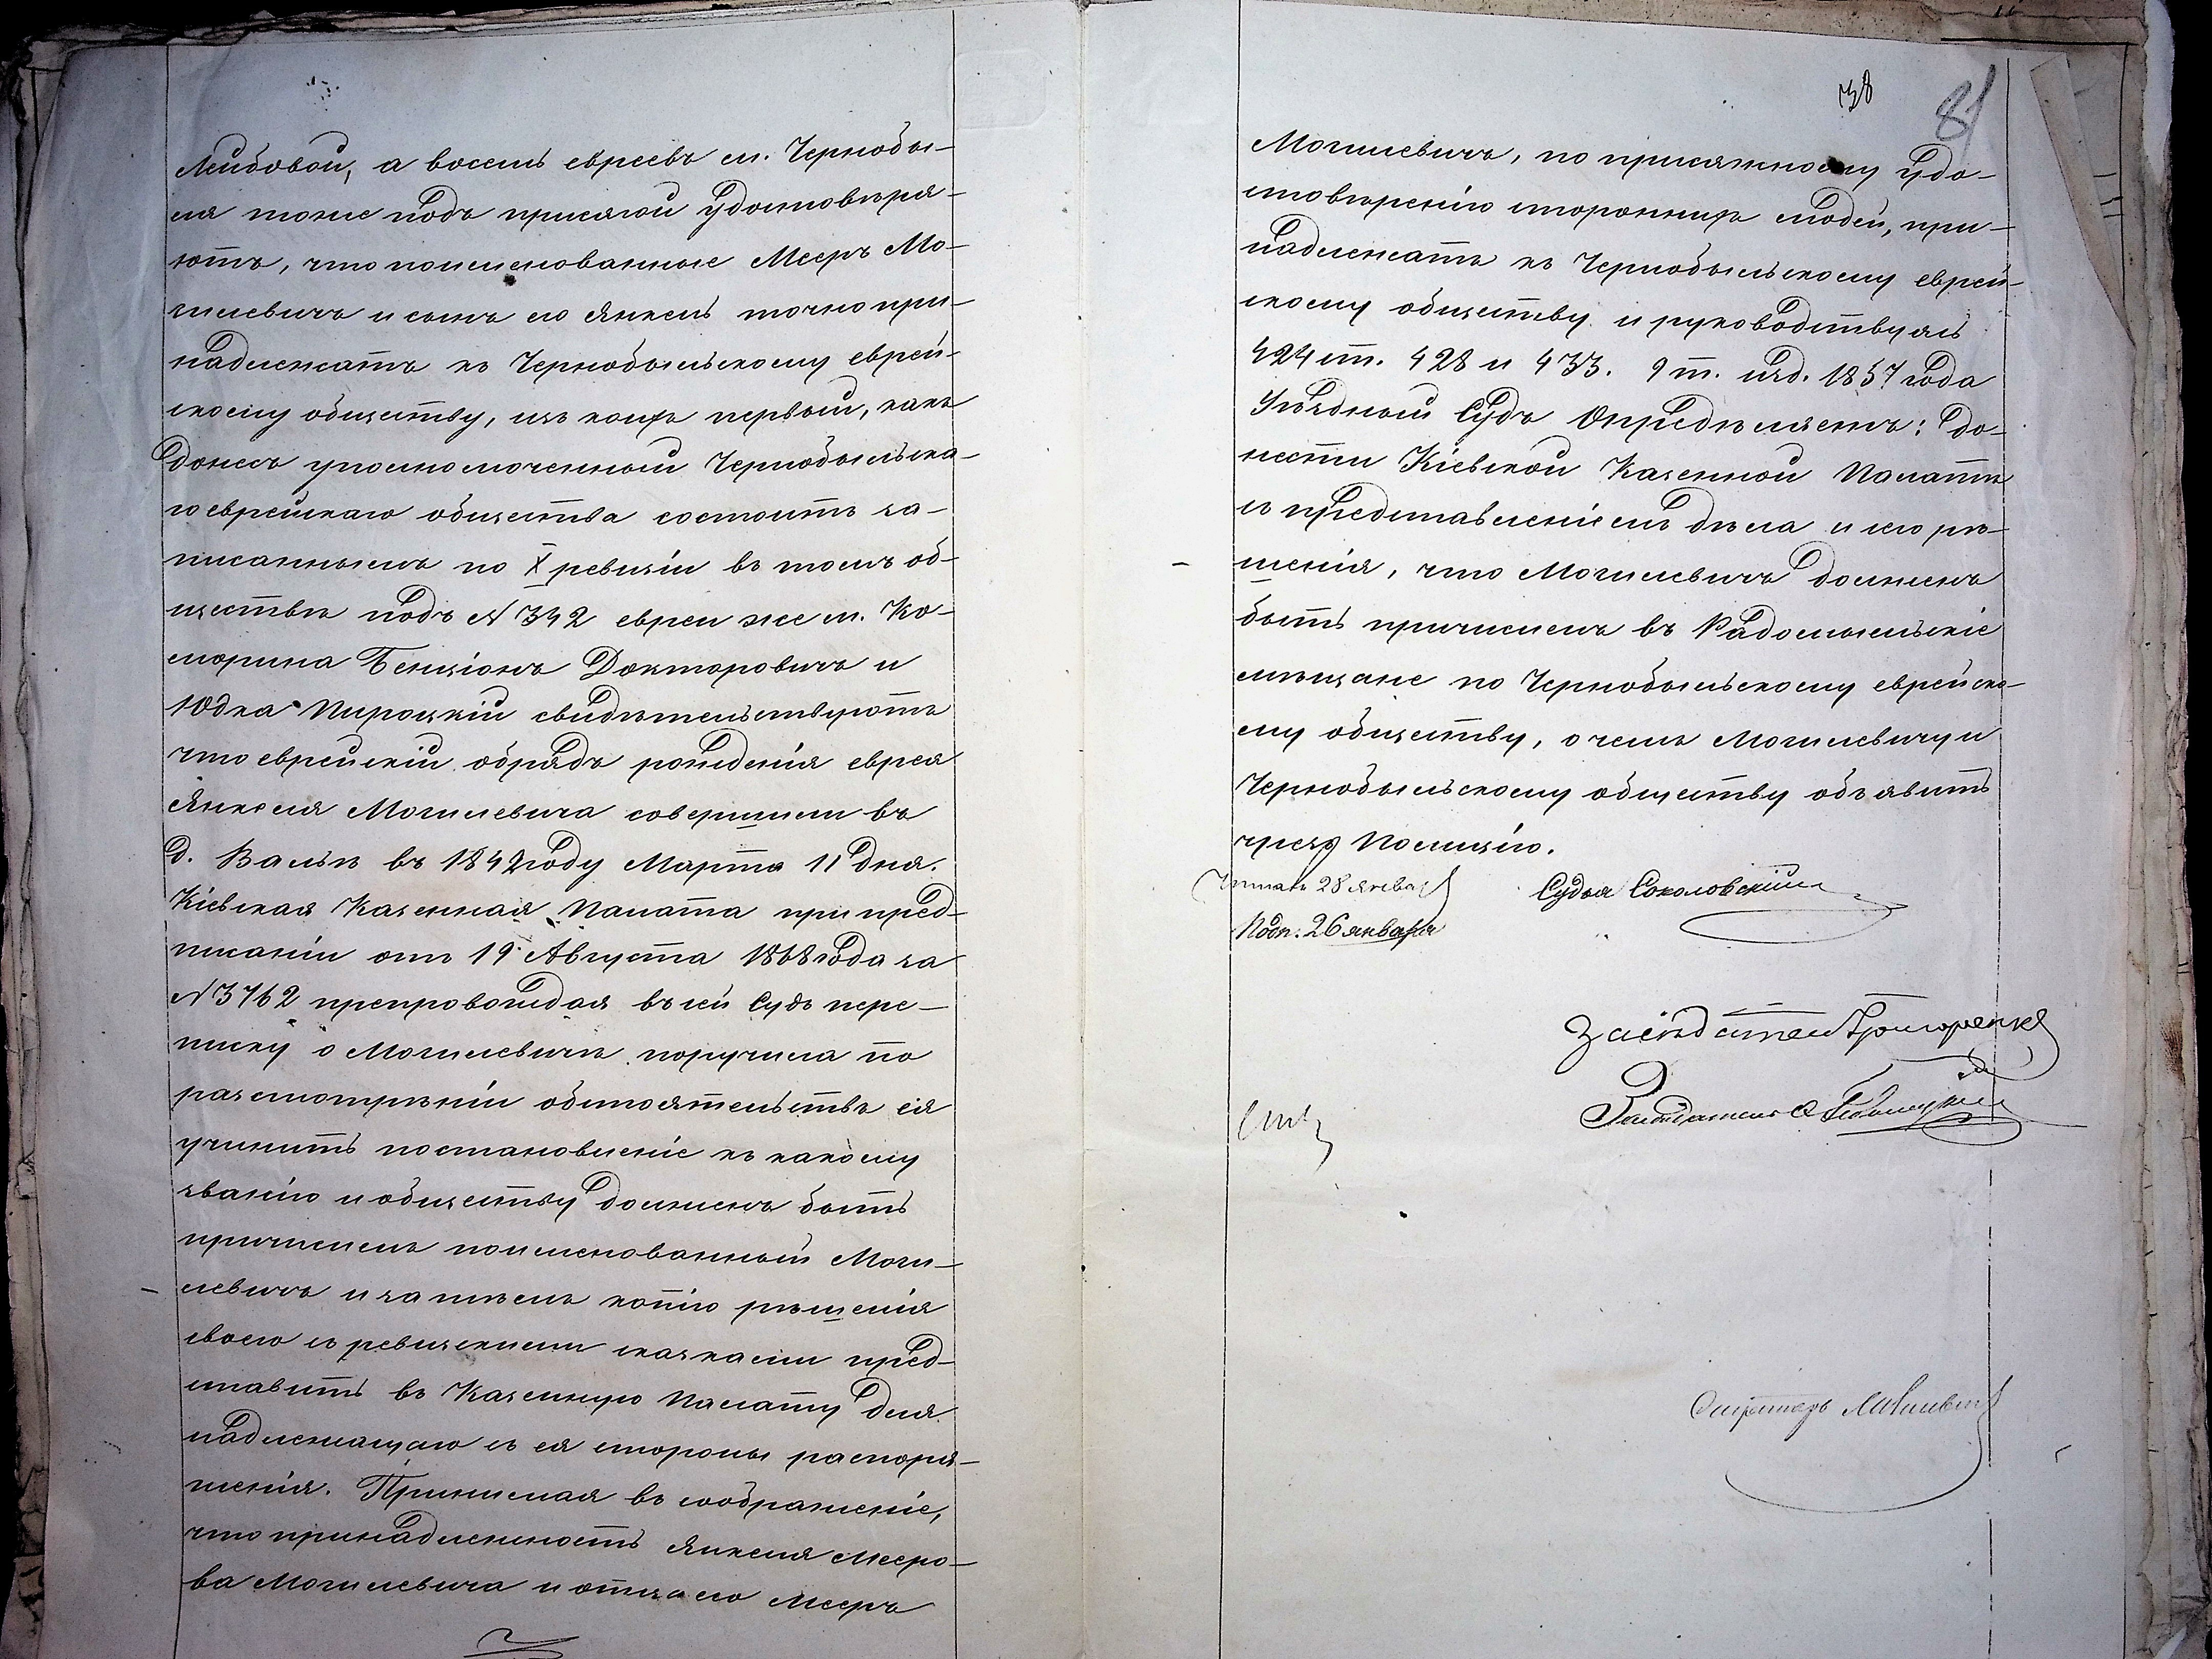 Лейбовой, а восемь евреевъ м. Чернобы-
ля тоже подъ присягой удостовѣря-
ютъ, что поименованные Мееръ Мо-
гилевичъ и сынъ его Янкель точно при-
надлежатъ къ Чернобыльскому еврей-
скому обществу, изъ коихъ первый, какъ
донесъ уполномоченный Чернобыльска-
го еврейскаго общества состоитъ за-
писаннымъ по X ревизіи въ томъ об-
ществѣ подъ № 342 евреи же м. Ко-
морина Бенціонъ Докторовичъ и
Юдка Пироцкій свидѣтельствуютъ
что еврейскій обрядъ рожденія еврея
Янкеля Могилевича совершили въ
д. Вальѣ въ 1842 году Марта 11 дня.
Кіевская Казенная Палата при пред-
писаніи отъ 19 Августа 1868 года за
№ 3762 препровождая въ сей Судъ пере-
писку о Могилевичѣ поручила по
разсмотрѣніи обстоятельствъ ея
учинить постановленіе къ какому
званію и обществу долженъ быть
причисленъ поименованный Моги-
левичъ и затѣмъ копію рѣшенія
своего съ ревизскими сказками пред-
ставить въ Казенную Палату для
надлежащаго съ ея стороны распоря-
женія. Принимая въ соображеніе,
что принадлежность Янкеля Мееро-
ва Могилевича и отца его Меера
81
Могилевичъ, по присяжному удо-
стовѣренію стороннихъ людей, при-
надлежатъ къ Чернобыльскому еврей-
скому обществу и руководствуясь
424 ст. 428 и 433. 9 т. изд. 1857 года
Уѣздный Судъ Опредѣляетъ: до-
нести Кіевской Казенной Палатѣ
съ представленіемъ дѣла и сего рѣ-
шенія, что Могилевичъ долженъ
быть причисленъ въ Радомысльскіе
мѣщане по Чернобыльскому еврейско-
му обществу, о чемъ Могилевичу и
Чернобыльскому обществу объявить
чрезъ Полицію.
Читалъ 28 января
Судья Соколовскій
Подп. 26 января
Засѣдатель Григоренко
Засѣдатель
Секретарь